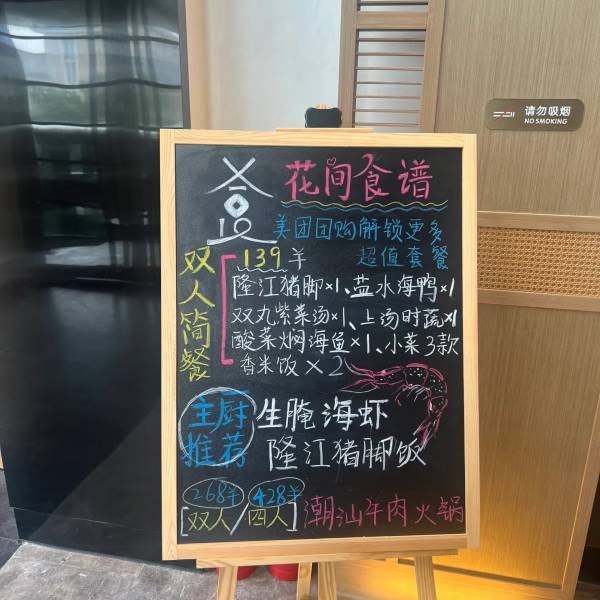 花间食谱
美团团购解锁更多
超值套餐
双人简餐
139羊
隆江猪脚×1、盐水海鸭×1
双丸紫菜汤×1、上汤时蔬×1
酸菜焖海鱼×1、小菜3款
香米饭×2
主厨推荐
生腌海虾
隆江猪脚饭
268羊 428羊
[双人/四人]潮汕牛肉火锅
请勿吸烟
NO SMOKING